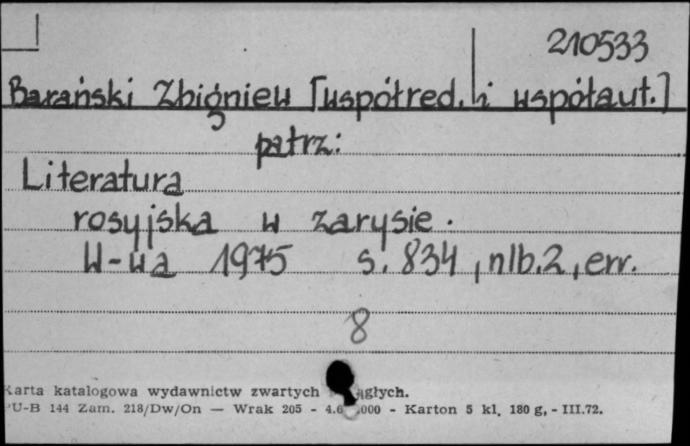 210533
Barański Zbigniew [współred. i współaut.]
patrz:
Literatura
rosyjska w zarysie.
W-wa 1975 s. 834, nlb. 2, err.
8
Karta katalogowa wydawnictw zwartych ciągłych.
PU-B 144 Zam. 218/Dw/On — Wrak 205 - 4.6 .000 - Karton 5 kl. 180 g, - III.72.